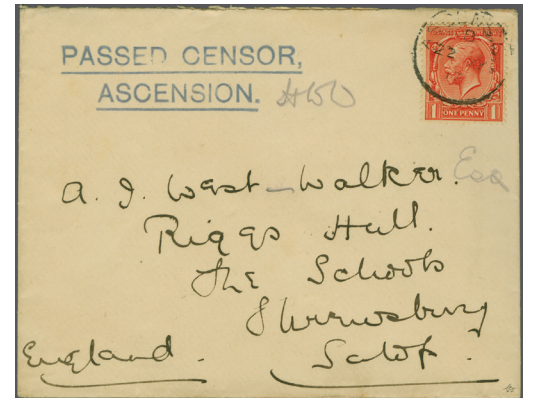 PASSED CENSOR,
ASCENSION.
1 ONE PENNY 1
A. J. West-Walker. Esq
Riggs Hall.
The Schools
Shrewsbury
England. Salop.